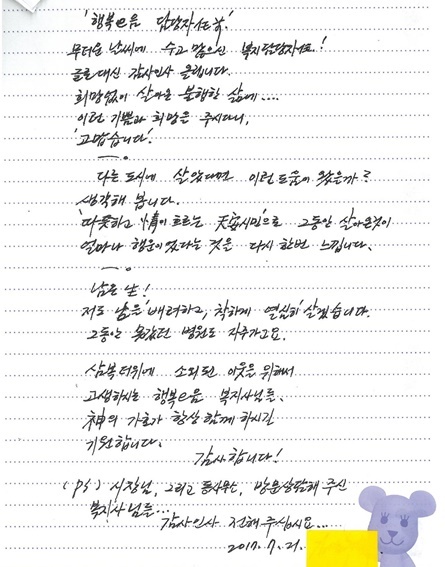 '행복e음 담당자任께.'
무더운 날씨에 수고 많으신 복지담당자任!
글로대신 감사인사 올립니다.
희망없이 살아온 불행한 삶에....
이런 기쁨과 희망을 주시다니,
'고맙습니다!'
다른 도시에 살았다면 이런 도움이 왔을까?
생각해 봅니다.
'따뜻하고 情이 흐르는 天安시민'으로 그동안 살아온것이
얼마나 행운이었다는 것을 다시 한번 느낍니다.
남은 生!
저도 남을 '배려하고, 착하게 열심히' 살겠습니다.
그동안 못갔던 병원도 자주가고요.
삼복더위에 소외된 이웃을 위해서
고생하시는 행복e음 복지사님들,
神의 가호가 항상 함께 하시길
기원합니다.
감사합니다!
(PS) 시장님, 그리고 동사무소, 방문상담해 주신
복지사님들...
감사인사 전해주십시요...
2017. 7. 21.